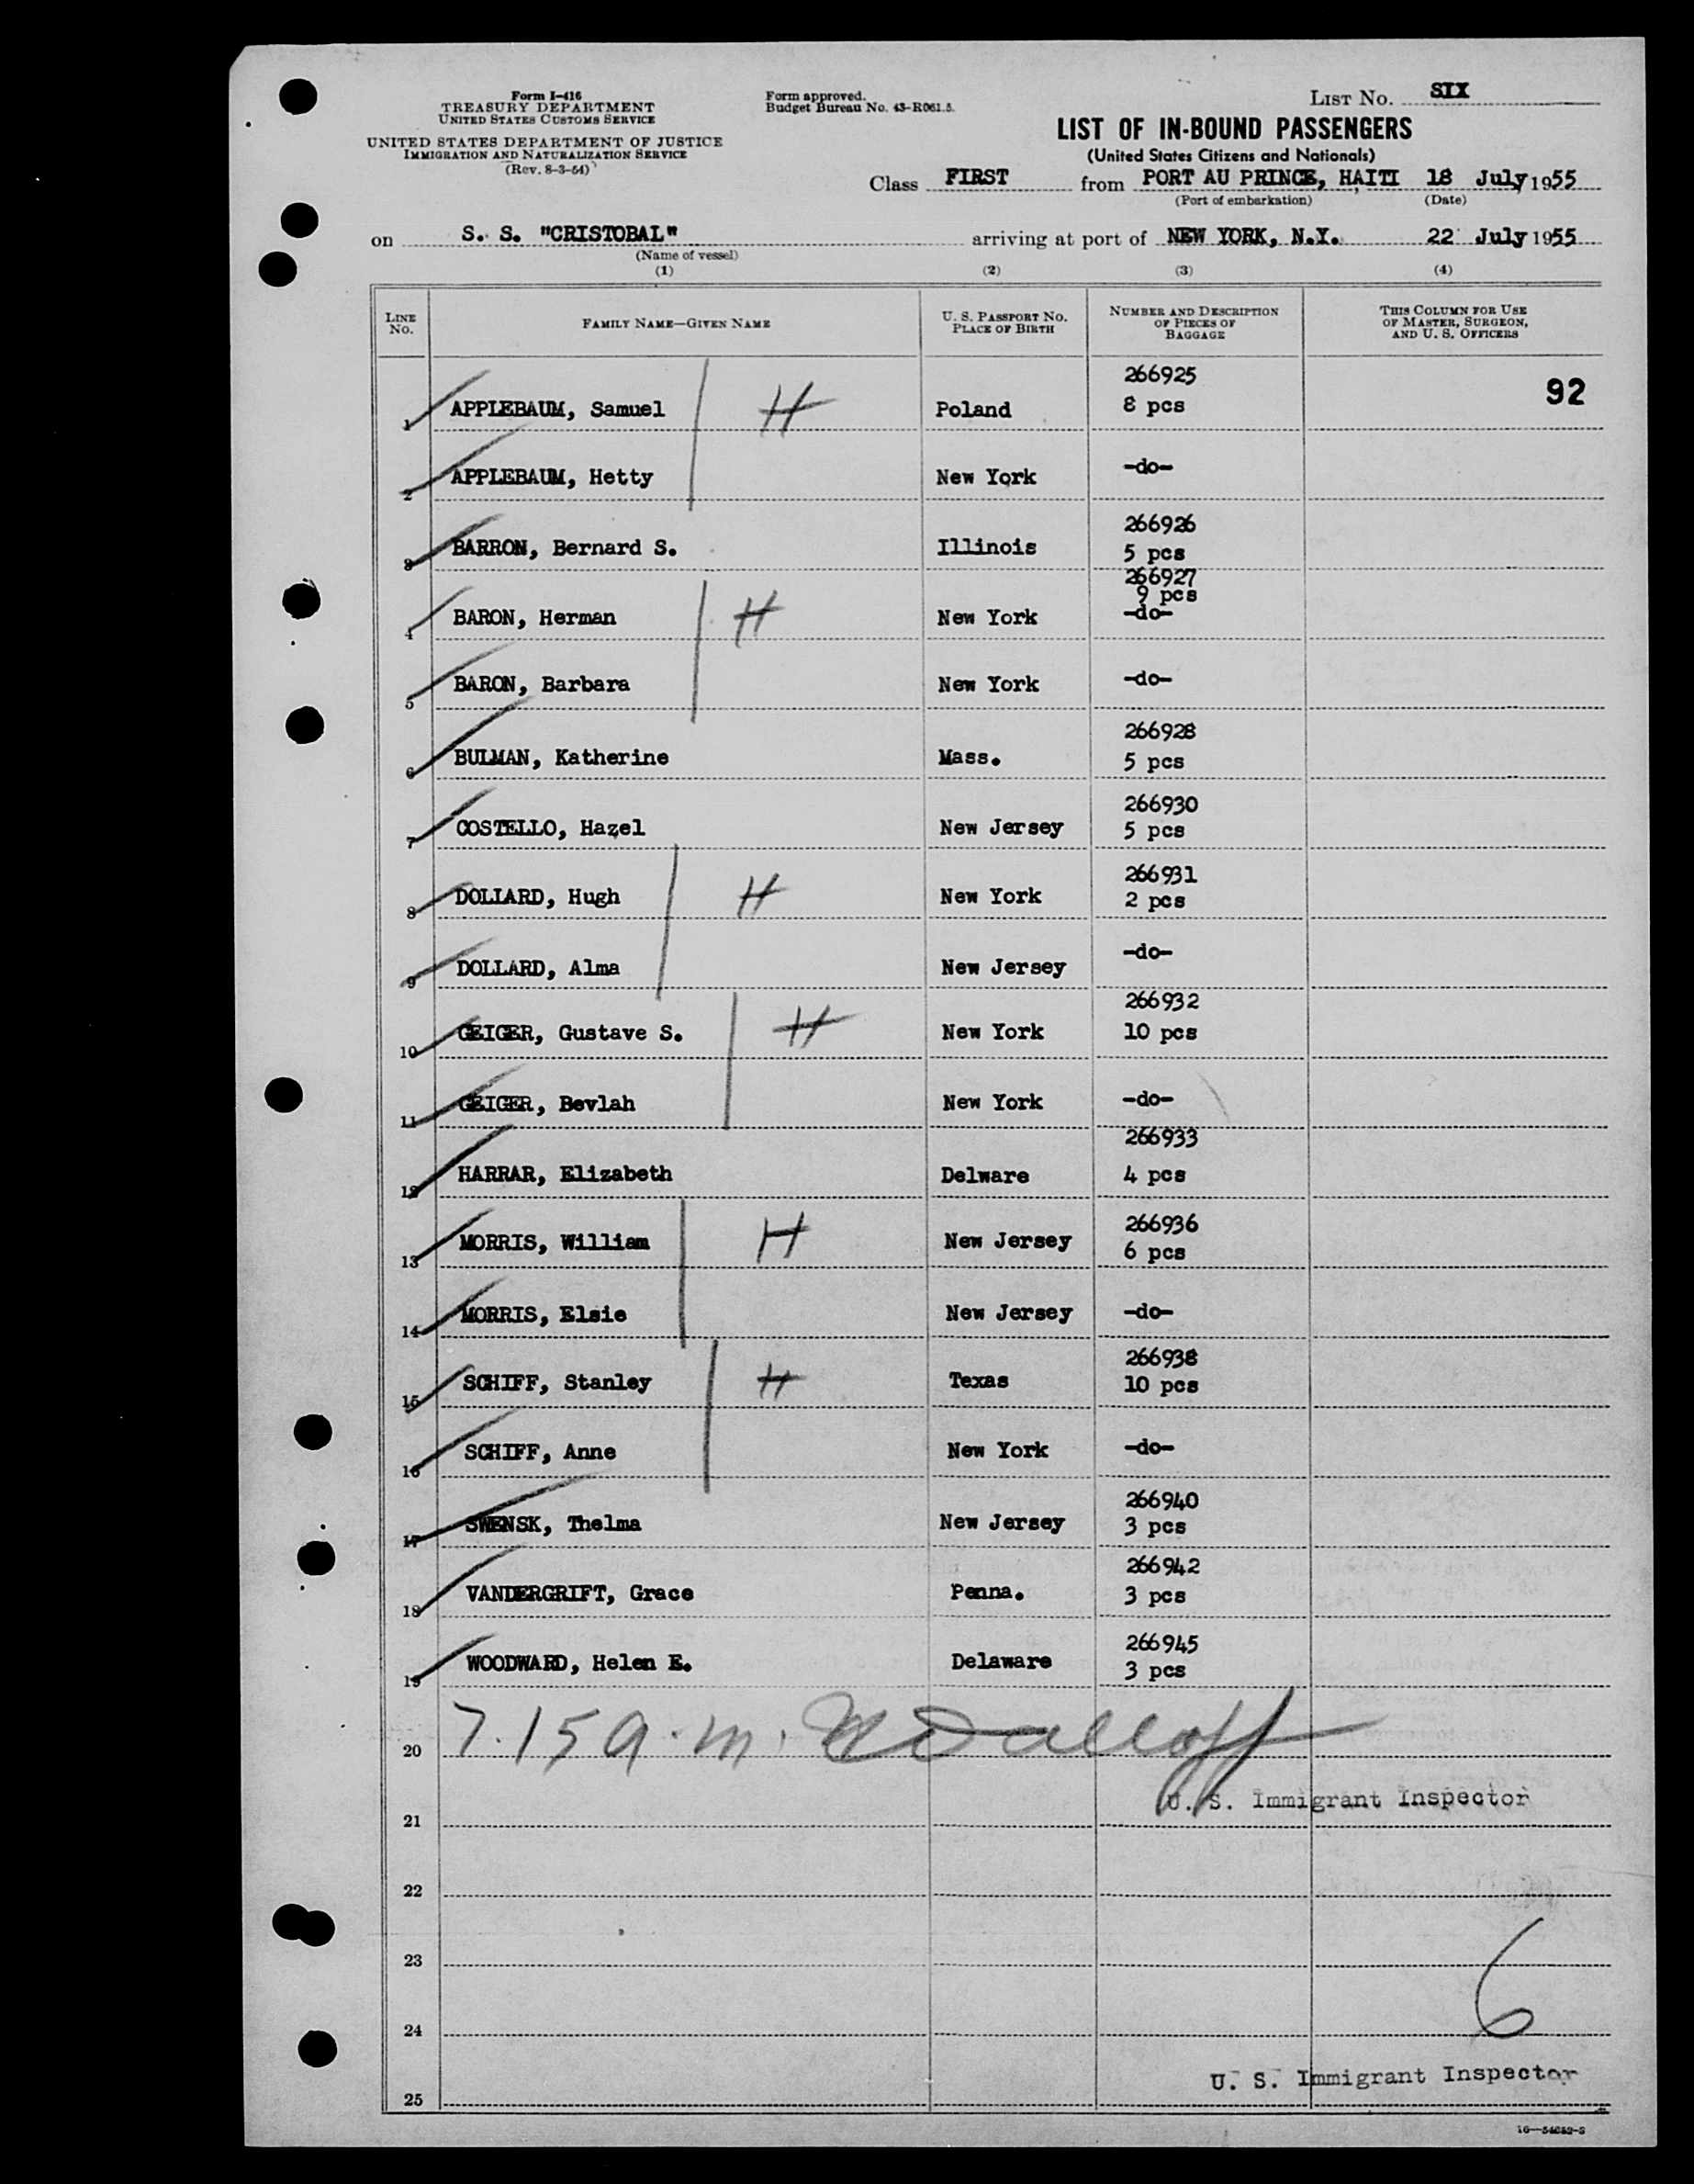 Form I-416
TREASURY DEPARTMENT
UNITED STATES CUSTOMS SERVICE
UNITED STATES DEPARTMENT OF JUSTICE
IMMIGRATION AND NATURALIZATION SERVICE
(Rev. 8-3-54)
Form approved.
Budget Bureau No. 43-R061.5.
LIST NO. SIX
LIST OF IN-BOUND PASSENGERS
(United States Citizens and Nationals)
Class FIRST from PORT AU PRINCE, HAITI 18 July 1955
(Port of embarkation) (Date)
on S. S. "CRISTOBAL" arriving at port of NEW YORK, N.Y. 22 July 1955
(Name of vessel)
(1) (2) (3) (4)
LINE NO. FAMILY NAME—GIVEN NAME U. S. PASSPORT NO. PLACE OF BIRTH NUMBER AND DESCRIPTION OF PIECES OF BAGGAGE THIS COLUMN FOR USE OF MASTER, SURGEON, AND U. S. OFFICERS
266925
92
1 APPLEBAUM, Samuel H Poland 8 pcs
2 APPLEBAUM, Hetty New York -do-
266926
3 BARRON, Bernard S. Illinois 5 pcs
266927
9 pcs
4 BARON, Herman H New York -do-
5 BARON, Barbara New York -do-
266928
6 BULMAN, Katherine Mass. 5 pcs
266930
7 COSTELLO, Hazel New Jersey 5 pcs
266931
8 DOLLARD, Hugh H New York 2 pcs
9 DOLLARD, Alma New Jersey -do-
266932
10 GEIGER, Gustave S. H New York 10 pcs
11 GEIGER, Bevlah New York -do-
266933
12 HARRAR, Elizabeth Delware 4 pcs
266936
13 MORRIS, William H New Jersey 6 pcs
14 MORRIS, Elsie New Jersey -do-
266938
15 SCHIFF, Stanley H Texas 10 pcs
16 SCHIFF, Anne New York -do-
266940
17 SWENSK, Thelma New Jersey 3 pcs
266942
18 VANDERGRIFT, Grace Penna. 3 pcs
266945
19 WOODWARD, Helen E. Delaware 3 pcs
20 7.15 a.m.
U. S. Immigrant Inspector
21
22
23
6
24
U. S. Immigrant Inspector
25